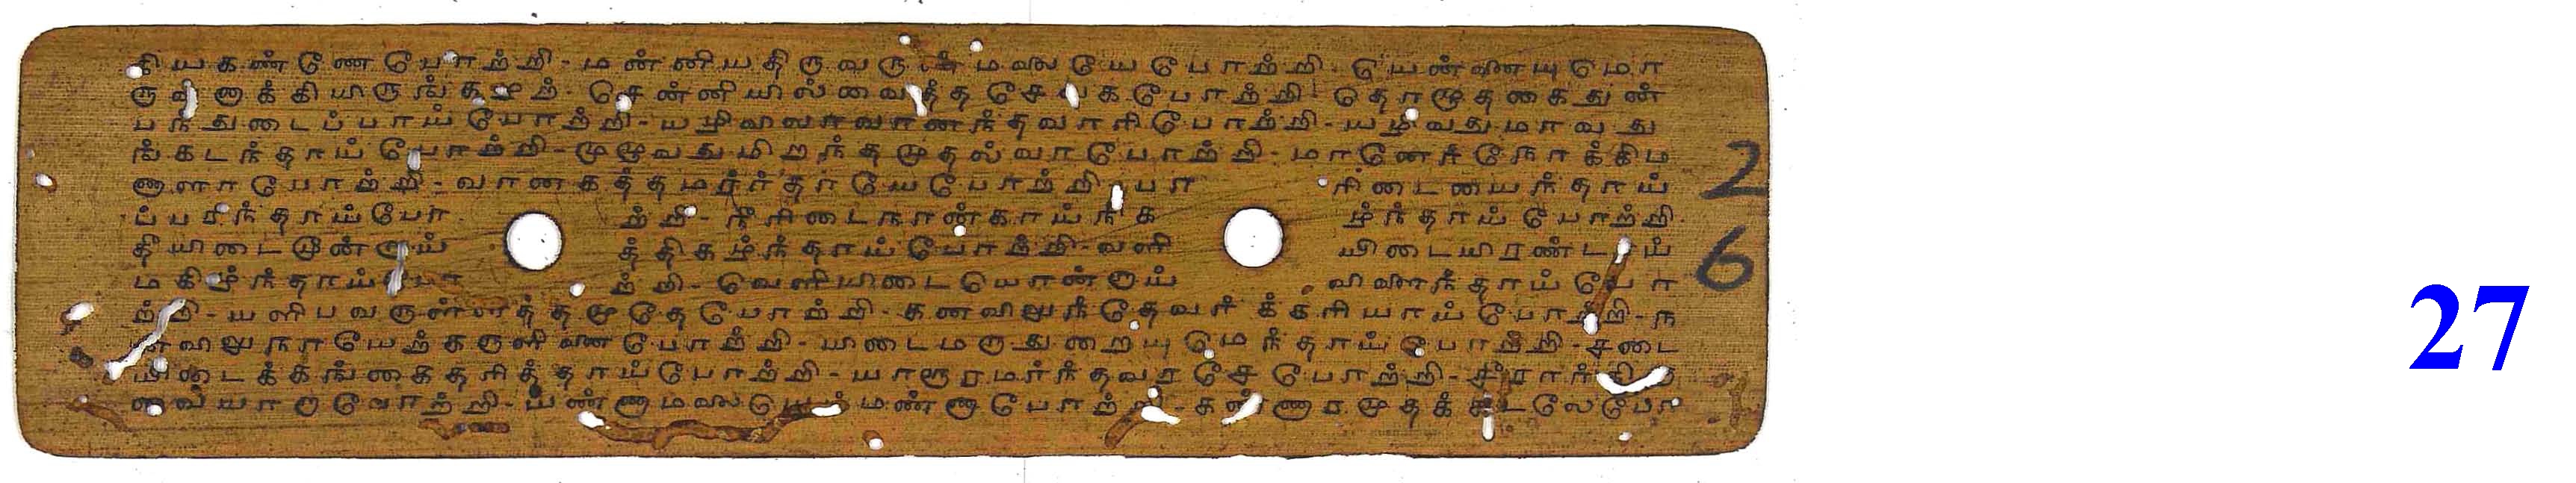 கியகண்ணேபோற்றி-மன்னியதிருவருள்மலையேபோற்றி-யென்னையுமொ
ருவனாக்கியிருங்கழற்-சென்னியில்வைத்தசேவகபோற்றி-தொழுதகைதுன்
பந்துடைப்பாய்போற்றி-யழிவிலாவானந்தவாரிபோற்றி-யழிவதுமாவது
ங்கடந்தாய்போற்றி-முழுவதுமிறந்தமுதல்வாபோற்றி-மானேர்நோக்கிம
ணாளாபோற்றி-வானகத்தமரர்தாயேபோற்றி-பா ரிடையைந்தாய்
ப்பரந்தாய்போ ற்றி-நீரிடைநான்காய்நிக ழ்ந்தாய்போற்றி
தீயிடைமூன்றாய் த்திகழ்ந்தாய்போற்றி-வளி யிடையிரண்டாய்
மகிழ்ந்தாய்போ ற்றி-வெளியிடையொன்றாய் விளைந்தாய்போ
ற்றி-யளிபவருள்ளத்தமுதேபோற்றி-கனவிலுந்தேவர்க்கரியாய்போற்றி-ந
னவிலுநாயேற்கருளினைபோற்றி-யிடைமருதுறையுமெந்தாய்போற்றி-சடை
யிடைக்கங்கைதரித்தாய்போற்றி-யாரூரமர்ந்தவரசேபோற்றி-சீரார்திரு
வையாறாபோற்றி-யண்ணாமலையெம்மண்ணாபோற்றி-கண்ணாரமுதக்கடலேபோ
2
6
27